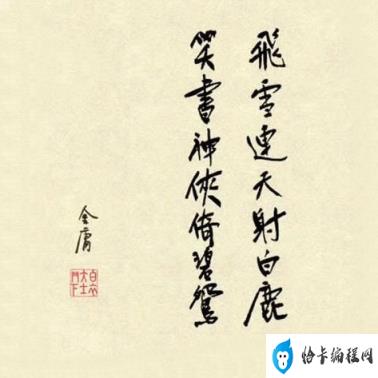 飛雪連天射白鹿
笑書神俠倚碧鴛
金庸
白衣
大士
門下
恰卡编程网